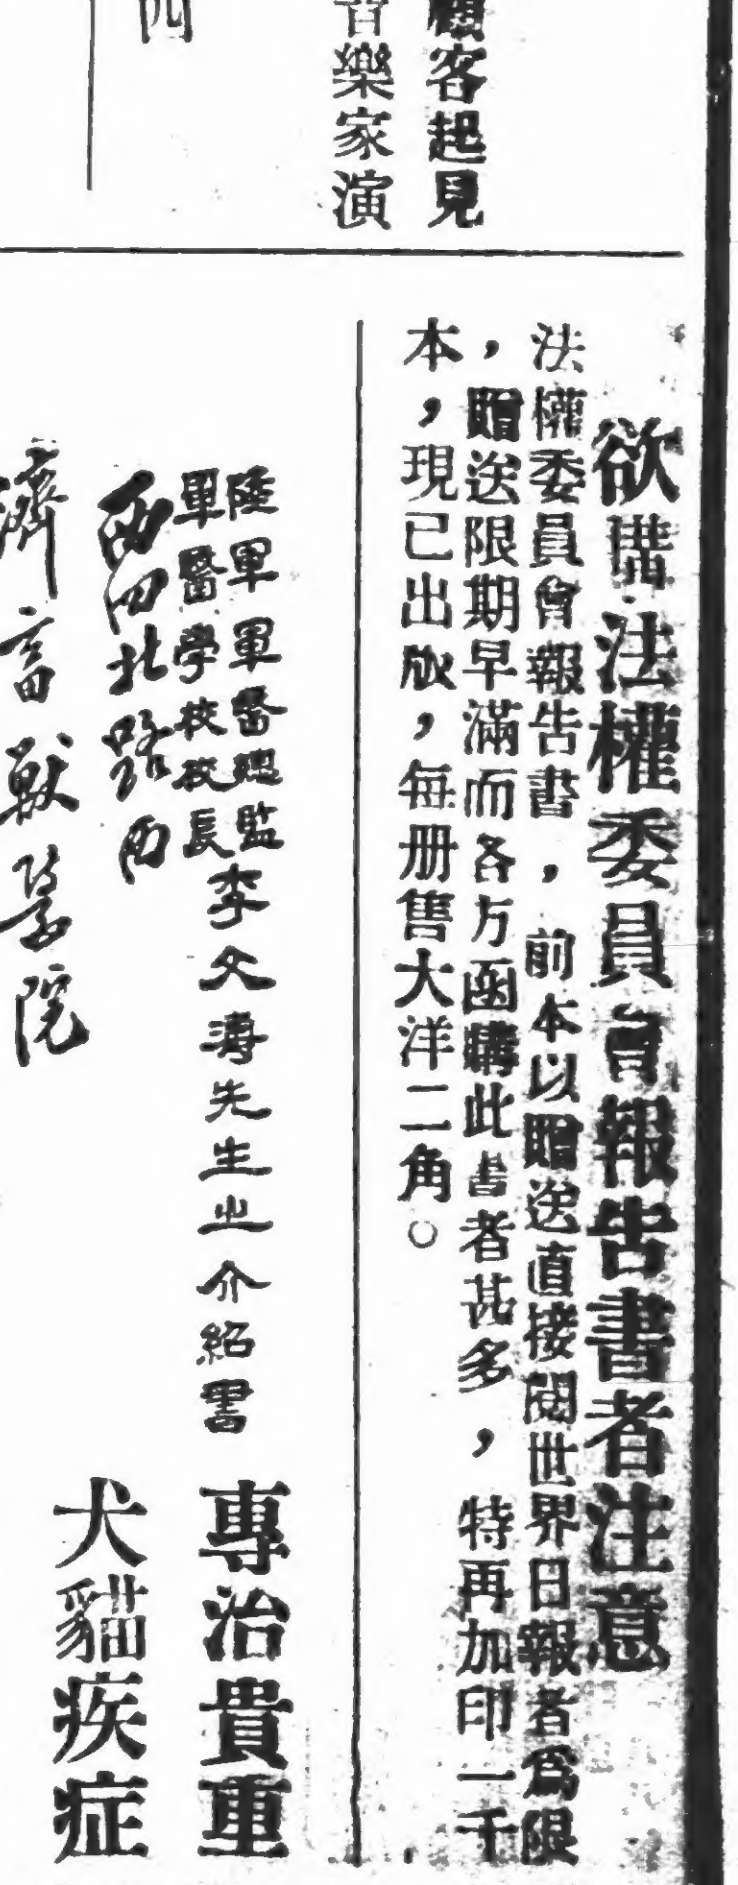 顧客起見
音樂家演
四
欲購法權委員會報告書者注意
法權委員會報告書，前本以贈送直接閱世界日報者爲限
，贈送限期早滿而各方函購此書者甚多，特再加印一千
本，現已出版，每册售大洋二角。
陸軍軍醫總監
軍醫學校校長
李文溥先生之介紹書
專治貴重
犬貓疾症
西四北路西
濟畜獸醫院